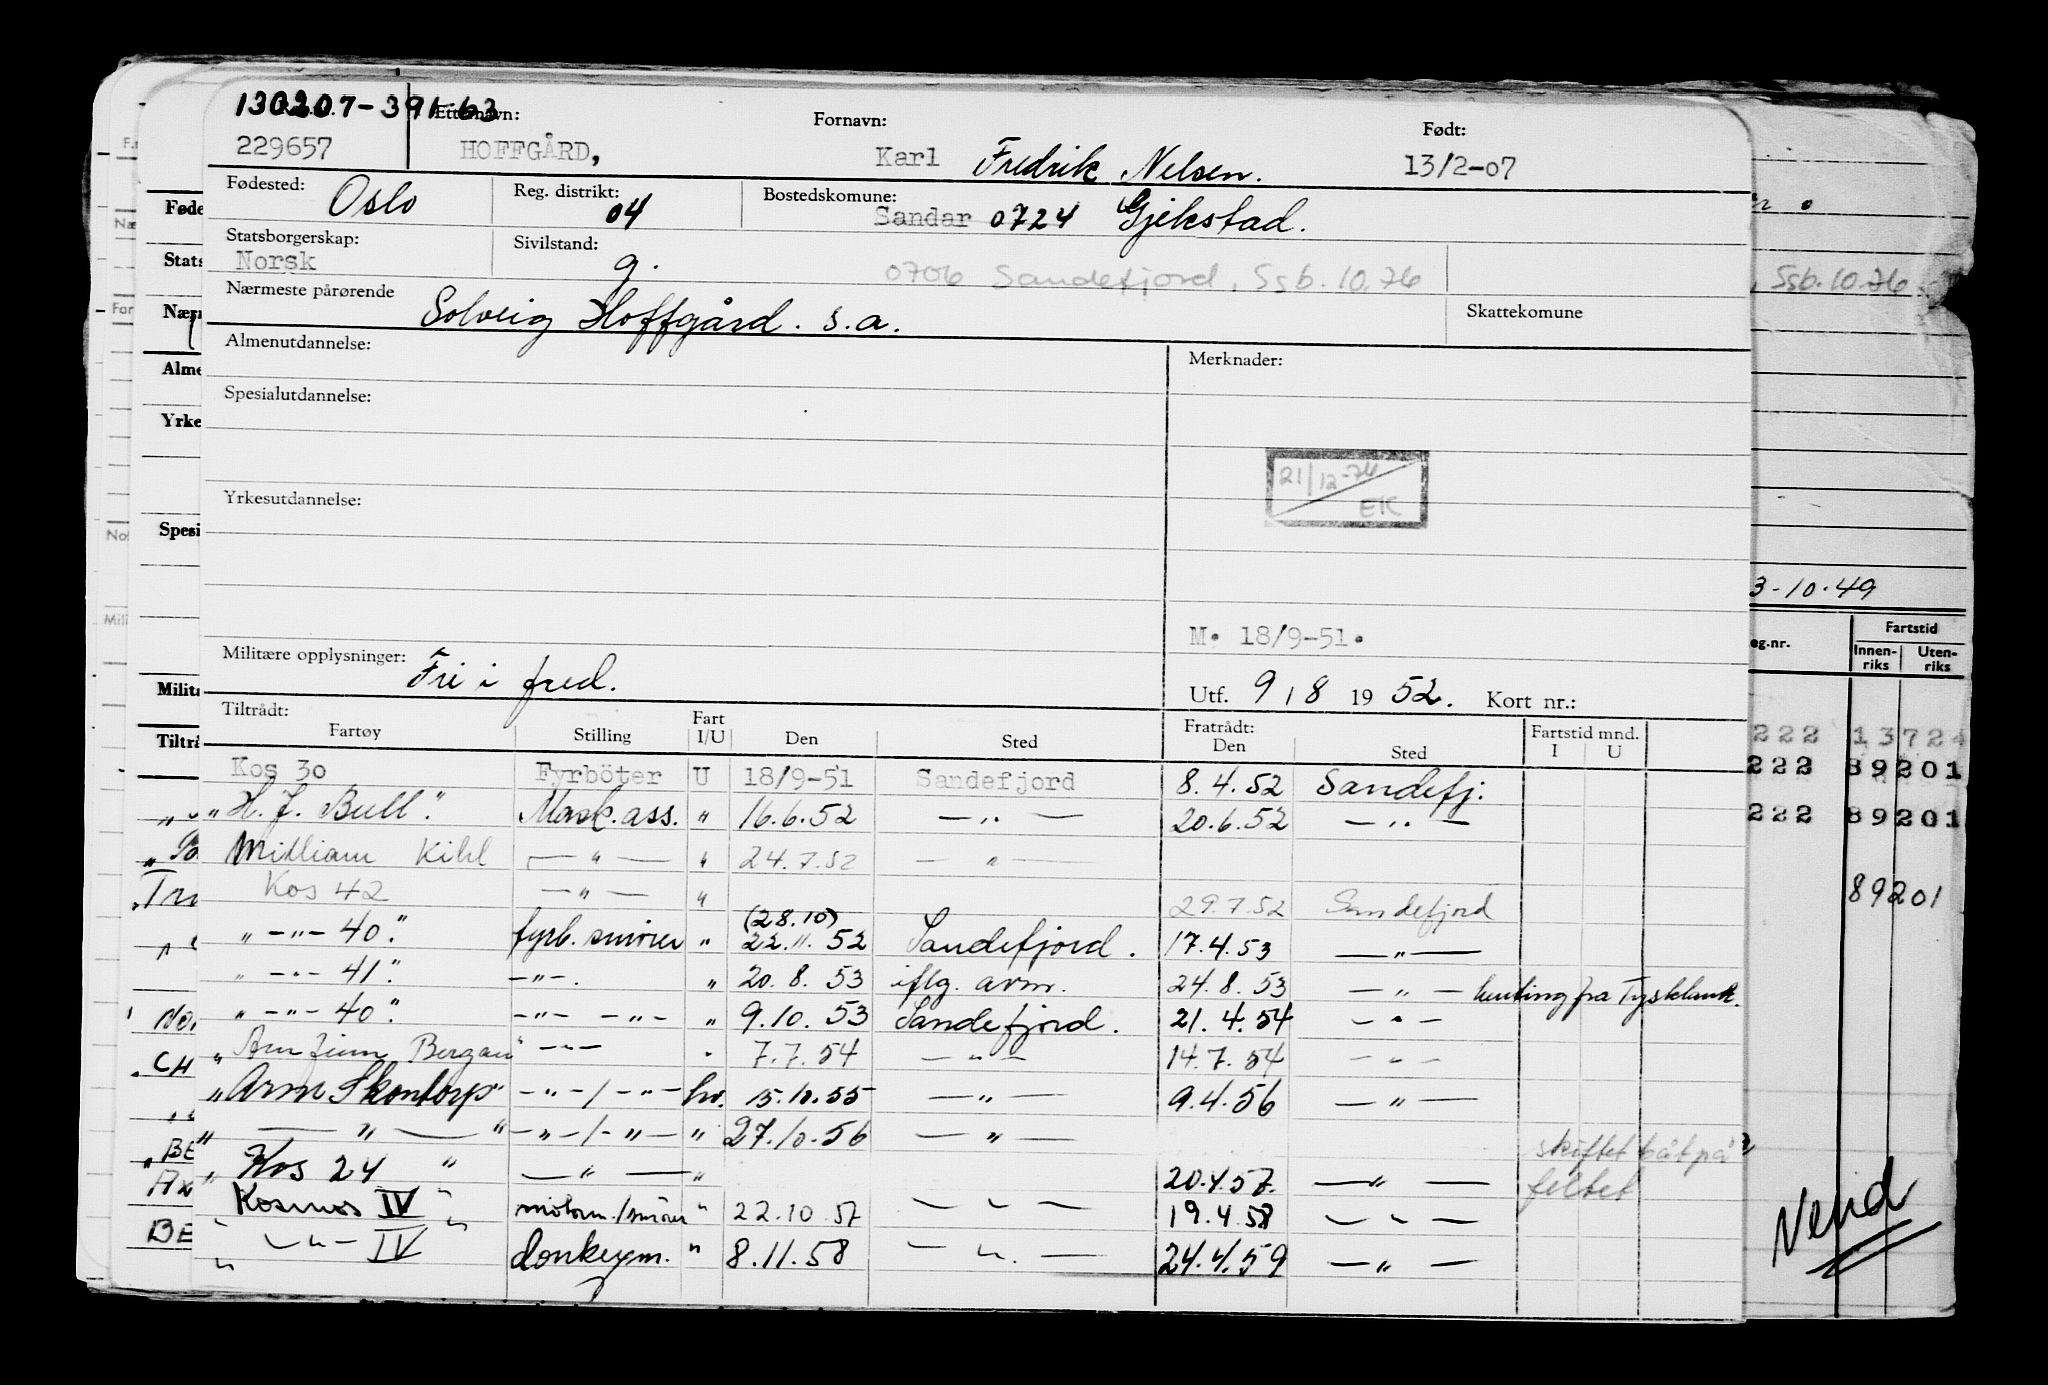 130207-391-63
Etternavn: Fornavn: Født:
229657 HOFFGÅRD, Karl Fredrik Nelsen. 13/2-07
Fødested: Oslo Reg. distrikt: 04 Bostedskomune: Sandar 0724 Gjekstad.
Statsborgerskap: Norsk Sivilstand: g. 0706 Sandefjord, Ssb. 10.76
Nærmeste pårørende Solveig Hoffgård. s.a. Skattekomune
Almenutdannelse: Merknader:
Spesialutdannelse:
21/12-74 EK
Yrkesutdannelse:
M. 18/9-51.
Militære opplysninger: Fri i fred.
Utf. 9/8 1952. Kort nr.:
Tiltrådt: Fratrådt:
Fartøy Stilling Fart I/U Den Sted Den Sted Fartstid mnd. I U
Kos 30 Fyrböter U 18/9-51 Sandefjord 8.4.52 Sandefj.
"H. J. Bull". Mask.ass. " 16.6.52 — " — 20.6.52 — " —
William Kihl — " — " 24.7.52 — " —
Kos 42 — " — " 29.7.52 Sandefjord
" — " — 40". fyrb. smører " (28.10) 22.11.52 Sandefjord. 17.4.53 — " —
" — " — 41". — " —. " 20.8.53 iflg. arm. 24.8.53 — " — henting fra Tyskland.
" — " — 40". — " — — " — " 9.10.53 Sandefjord. 21.4.54 — " —
" Bergan" — " — " 7.7.54 — " — 14.7.54 — " —
"Arne Skontorp" — " — / — " — hv. 15.10.55 — " — 9.4.56 — " —
" — " — " — " — / — " — " 27.10.56 — " —
" Kos 24 " — " — " 20.4.57. — " — skiftet båt på feltet
"Kosmos IV" motorm./smører " 22.10.57 — " — 19.4.58 — " —
" — " — IV " donkeym. " 8.11.58 — " — 24.4.59 — " —
Ssb. 10.76
3-10-49
eg.nr. Fartstid
Innen-riks Uten-riks
222 13724
222 89201
222 89201
89201
Vend
Føde
Stats
Nærm
Alme
Yrke
Spesi
Milita
Tiltrå